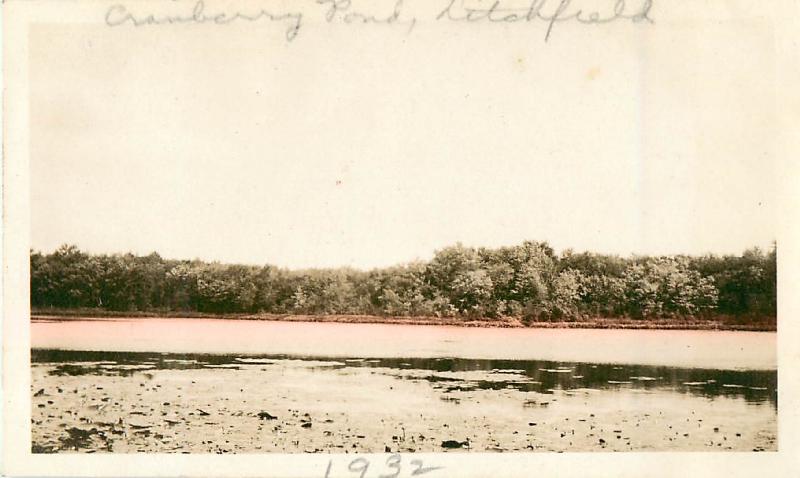 Cranberry Pond, Litchfield
1932